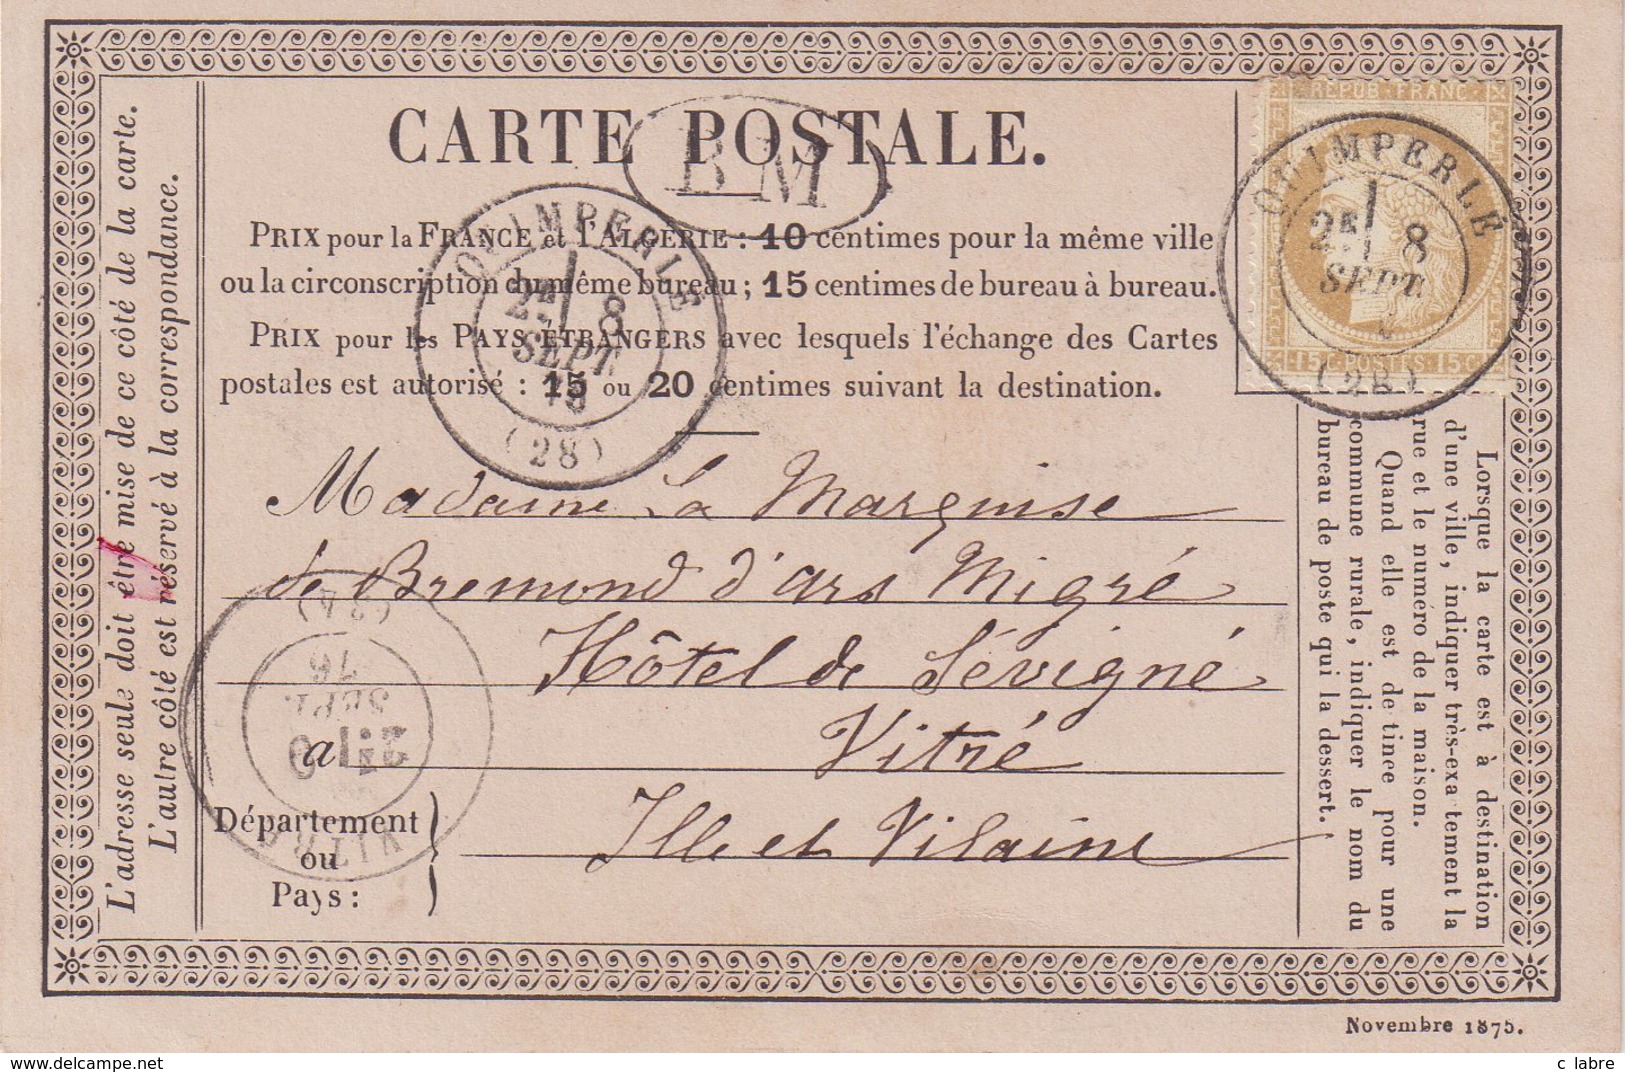 CARTE POSTALE.
B M
PRIX pour la FRANCE et l'ALGÉRIE : 10 centimes pour la même ville
ou la circonscription du même bureau ; 15 centimes de bureau à bureau.
PRIX pour les PAYS ÉTRANGERS avec lesquels l'échange des Cartes
postales est autorisé : 15 ou 20 centimes suivant la destination.
REPUB · FRANC
15 C · POSTES · 15 C
QUIMPERLÉ
2E 8
SEPT
(28)
QUIMPERLÉ
2E 8
SEPT
(28)
Madame La Marquise
de Bremond d'Ars Migré
Hôtel de Sévigné
a Vitré
Département
ou
Pays :
Ille et Vilaine
VITRÉ
SEPT.
76
L'adresse seule doit être mise de ce côté de la carte.
L'autre côté est réservé à la correspondance.
Lorsque la carte est à destination
d'une ville, indiquer très-exa tement la
rue et le numéro de la maison.
Quand elle est de tinée pour une
commune rurale, indiquer le nom du
bureau de poste qui la dessert.
Novembre 1875.
www.delcampe.net
c labre